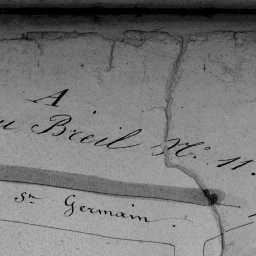 A.
u Breil N.º 11.
S.ᵗ Germain.